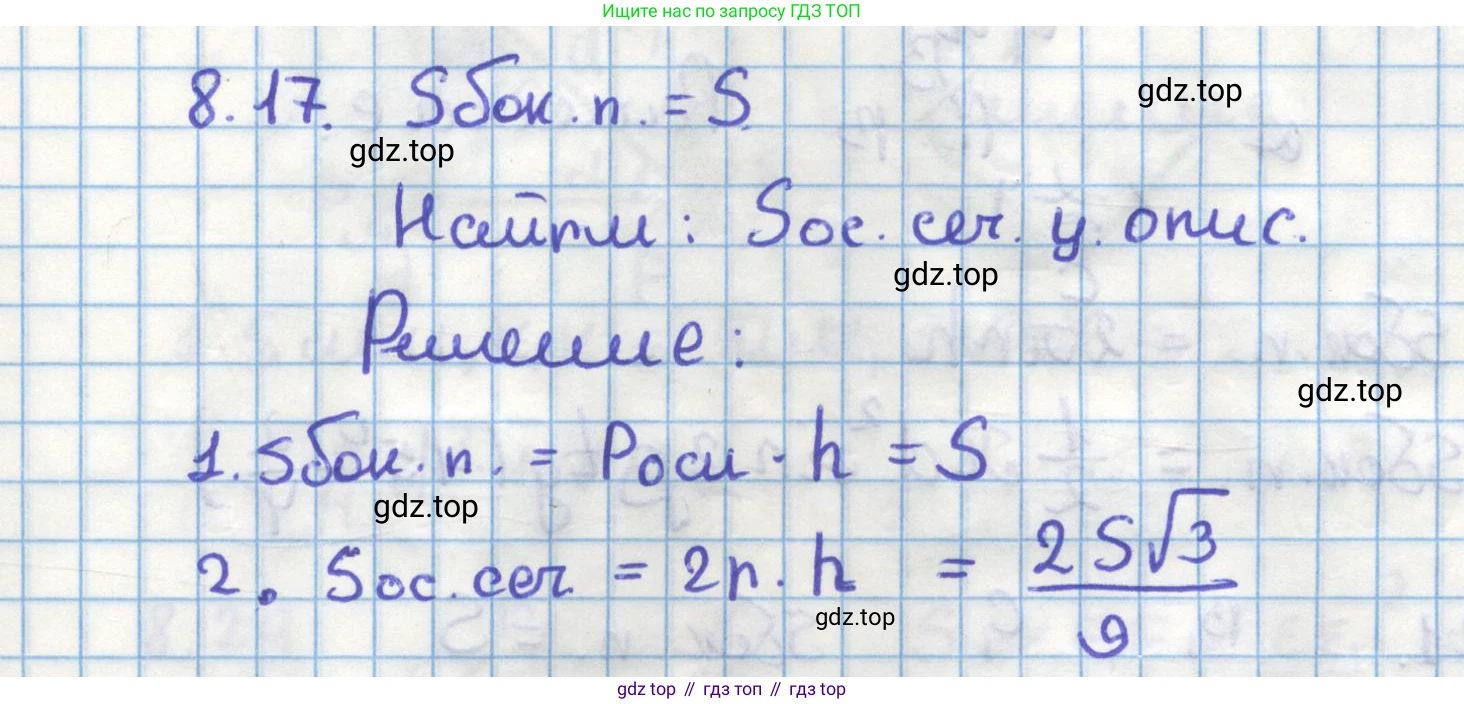 Ищите нас по запросу ГДЗ ТОП
8.17. Sбок.п. = S.
gdz.top
gdz.top
Найти: Sос. сеч. ц. опис.
gdz.top
Решение:
gdz.top
1. Sбок.п. = Pосн · h = S
gdz.top
2. Sос.сеч = 2r · h = 2S√3/9
gdz.top
gdz top // гдз топ // gdz top